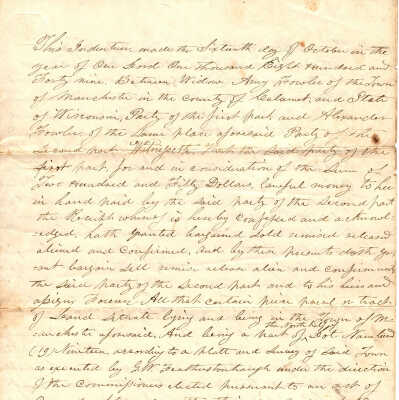 This Indenture made the Sixteenth day of October in the
year of Our Lord One thousand Eight Hundred and
Forty nine. Between Widow Amy Fowler of the Town
of Manchester in the County of Calumet, and State
of Wisconsin, Party of the first part and Alexander
Fowler of the Same place aforesaid Party of the
Second part Witnesseth That the Said party of the
first part, for and in consideration of the Sum of
Two Hundred and Fifty Dollars, Lawful money to her
in hand paid by the Said party of the Second part
the Receipt whereof is hereby Confessed and acknowl-
edged, hath granted bargained Sold remised released
aliened and Confirmed, and by these presents doth gr-
ant bargain Sell remise release alien and confirm unto
the Said party of the Second part and to his heirs and
assigns Forever, All that certain piece parcel or tract
of Land Situate lying and being in the Town of M-
anchester aforesaid, And being a part of Lot Number
the North half of
(19) Nineteen according to a platt and Survey of Said Town
as executed by G.W. Featherstonhaugh under the direction
of the Commissioners elected pursuant to an act of